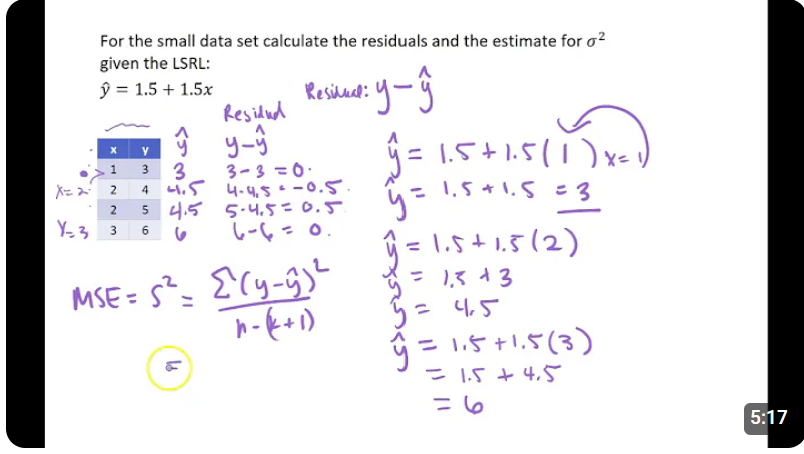 For the small data set calculate the residuals and the estimate for σ²
given the LSRL:
ŷ = 1.5 + 1.5x
Residual: y − ŷ
Residual
x y ŷ y − ŷ
1 3 3 3 − 3 = 0.
x = 2 2 4 4.5 4 - 4.5 = −0.5.
2 5 4.5 5 - 4.5 = 0.5.
x = 3 3 6 6 6 − 6 = 0.
MSE = S² = Σ(y − ŷ)² / n − (k + 1)
=
ŷ = 1.5 + 1.5(1) x = 1
ŷ = 1.5 + 1.5 = 3
ŷ = 1.5 + 1.5(2)
ŷ = 1.5 + 3
ŷ = 4.5
ŷ = 1.5 + 1.5(3)
= 1.5 + 4.5
= 6
5:17